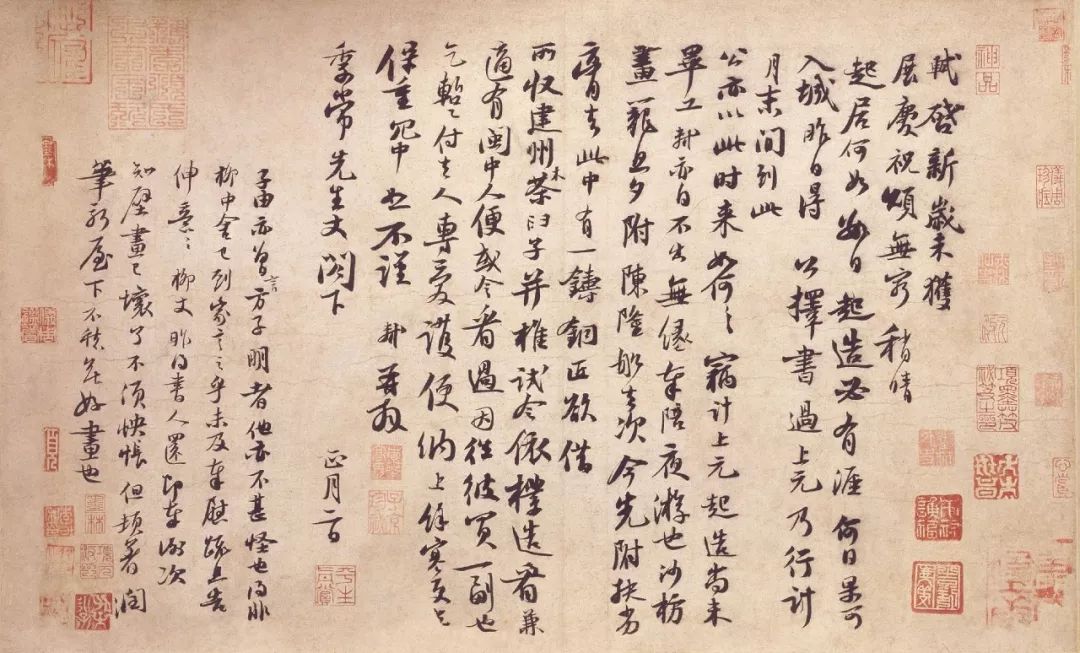 軾啓新歲未獲
展慶祝頌無窮稍晴
起居何如數日起造必有涯何日果可
入城昨日得公擇書過上元乃行計
月末間到此
公亦以此時來如何〻竊計上元起造尚未
畢工軾亦自不出無緣奉陪夜游也沙枋
畫籠旦夕附陳隆船去次今先附扶劣
膏去此中有一鑄銅匠欲借
所收建州木茶臼子并椎試令依樣造看兼
適有閩中人便或令看過因往彼買一副也
乞暫付去人專愛護便納上餘寒更乞
保重冗中恕不謹軾再拜
季常先生丈閣下
正月二日
子由亦曾言方子明者他亦不甚怪也得非
柳中舍已到家言之乎未及奉慰疏且告
伸意〻柳丈昨得書人還即奉謝次
知壁畫已壞了不須怏悵但頓著潤
筆新屋下不愁無好畫也
神品